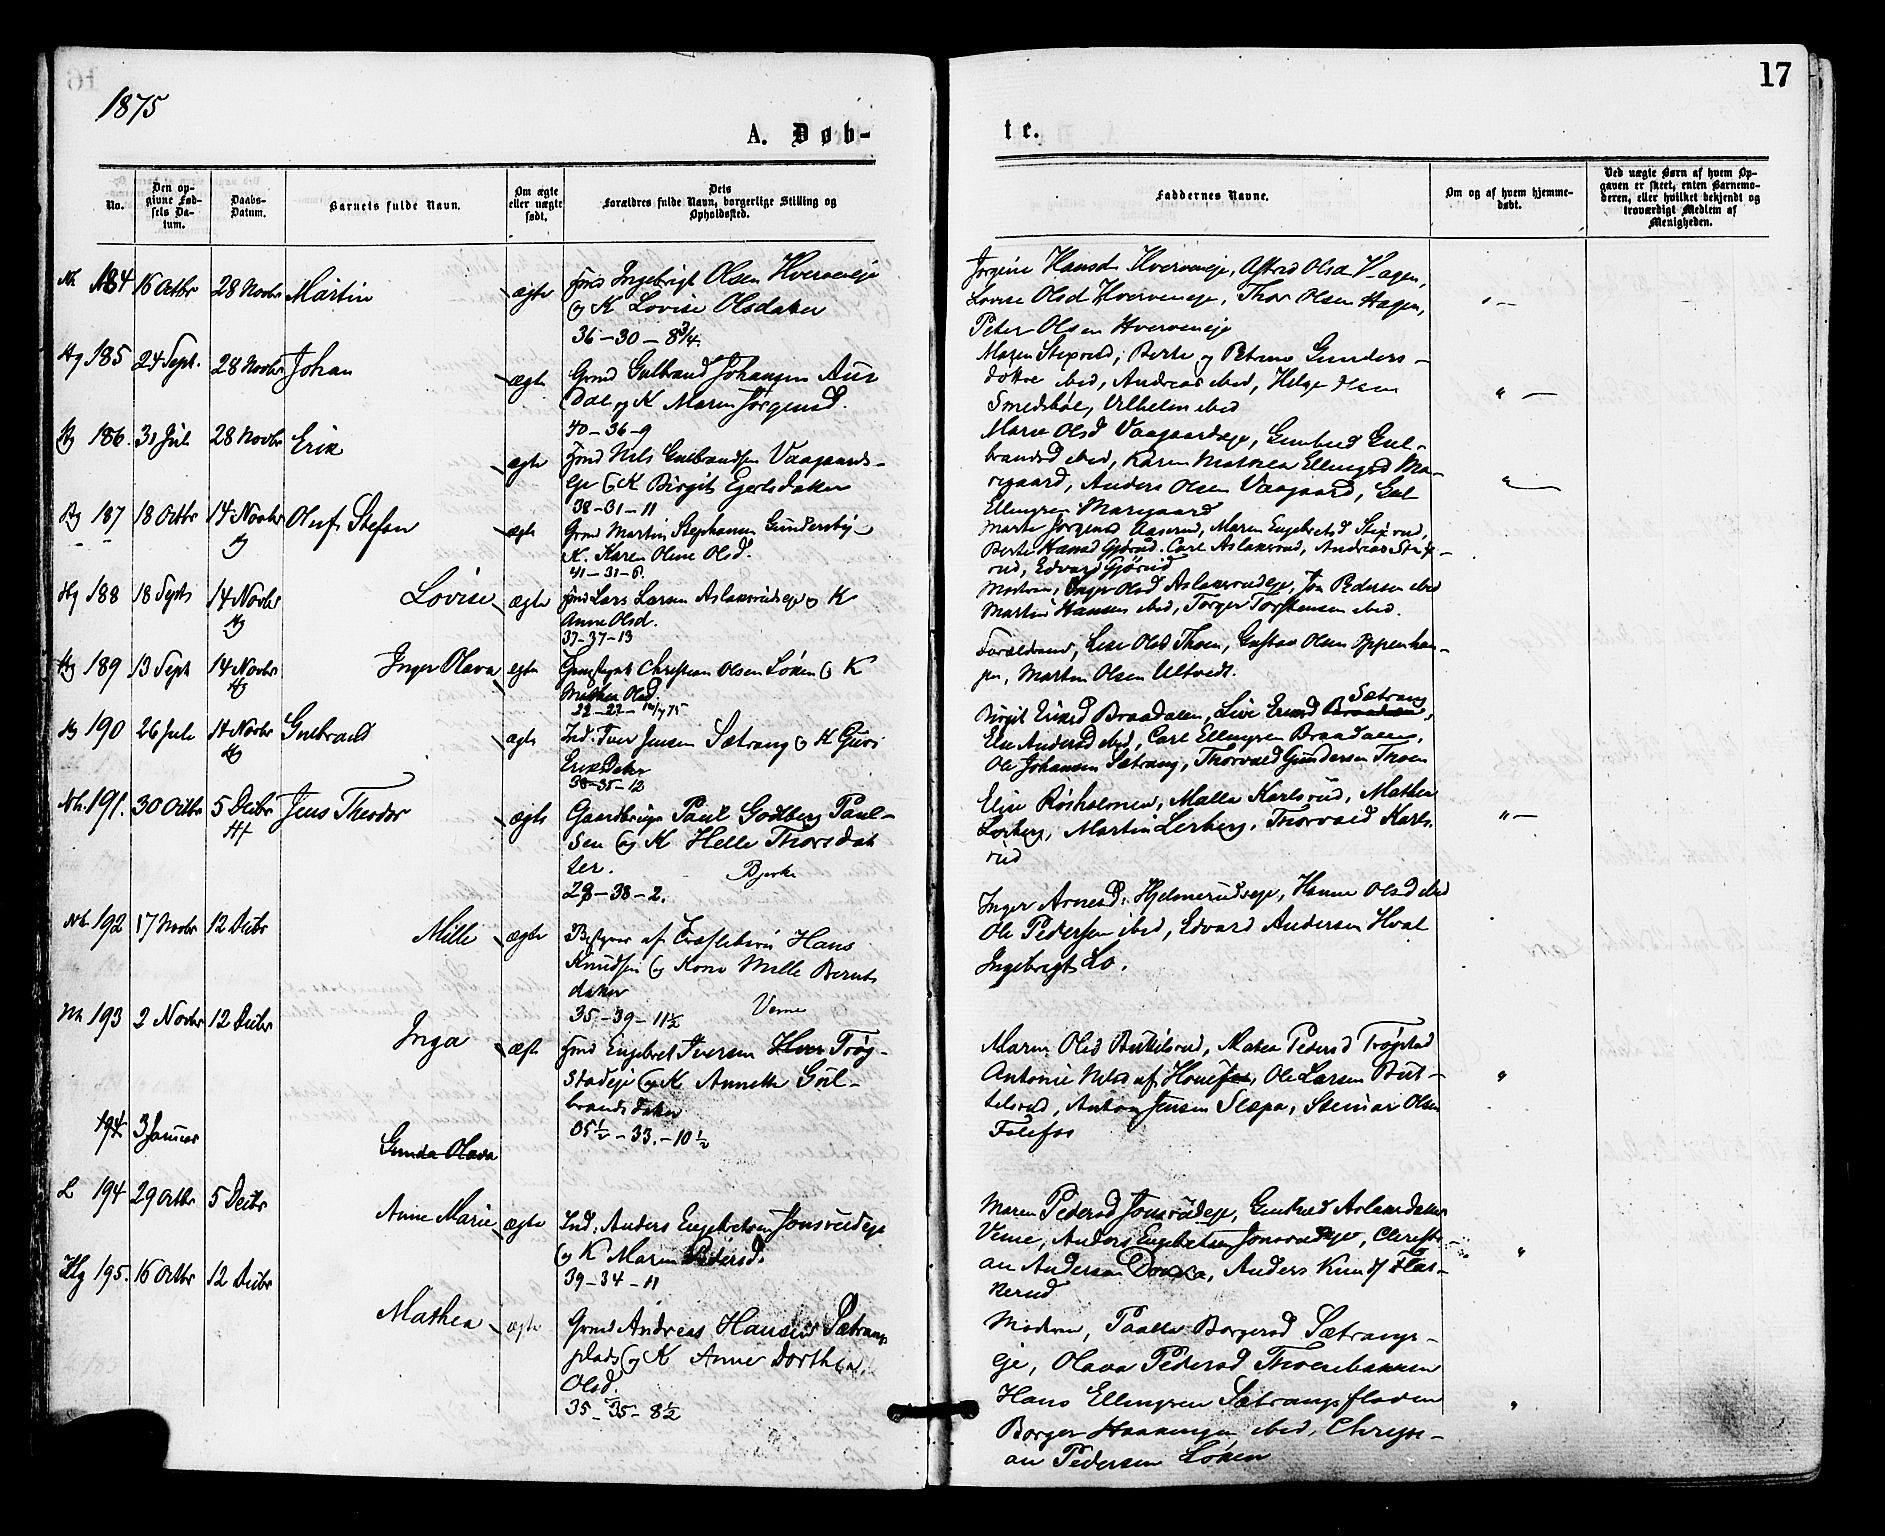 1875
17
A. Døb-
te.
No.
Den op-
givne Fød-
sels Da-
tum.
Daabs-
Datum.
Barnets fulde Navn.
Om ægte
eller uægte
født.
Dets
Forældres fulde Navn, borgerlige Stilling og
Opholdssted.
Faddernes Navne.
Om og af hvem hjemme-
døbt.
Ved uægte Børn af hvem Op-
gaven er skeet, enten Barnemo-
deren, eller hvilket bekjendt og
troværdigt Medlem af
Menigheden.
Nh 184 16 Octbr 28 Novbr Martin ægte
Ingebrigt Olsen Hverveneje
og K Lovise Olsdatter
36-30-8 3/4.
Jørgine Hansd Hverveneje, Astrid Olsd Hagen,
Lovise Olsd Hverveneje, Thor Olsen Hagen,
Peter Olsen Hverveneje
Hg 185 24 Sept. 28 Novbr Johan ægte
Grmd Gulbrand Johansen Aur
dal og K Maren Jørgensd.
40-36-9
Maren Stixrud, Berte og Petrine Gunders-
døttre ibid, Andreas ibid, Helge Olsen
Smedsbøl, Vilhelm ibid
Hg 186. 31 Juli 28 Novbr Erik ægte
Nils Gulbrandsen Vaagaards-
eje og K Birgit Egertsdatter
38-31-11
Marie Olsd Vaagaardseje, Gunhild Gul-
brandsd ibid, Karen Mathea Ellingsd Mo-
Anders Olsen Vaagaard, Gul
Ellingsen
Hg 187 18 Octbr 14 Novbr Oluf Stefan ægte
Hg
Grmd Martin Stephansen Gundersby
K. Karen Oline Olsd.
41-31-6.
Marte Jørgensd Aaserud, Maren Engebretsd Stixrud,
Berte Hansd Gjørud. Carl Aslaksrud, Andreas Stix-
rud, Edvard Gjørud
Hg 188 18 Septb 14 Novbr Lovise ægte
Hg
Lars Larsen Aslaksrudseje og K
Anne Olsd.
37-37-13
Moderen, Inger Olsd Aslaksrudseje, Jon Pedersen ibid
Martin Hansen ibid, Torger Torstensen ibid.
Hg 189 13 Sept 14 Novbr Inger Olava ægte
Hg
Christian Olsen Løken og K
Mathea Olsd.
22-22-
Forældrene, Lise Olsd Thoen, Gustav Olsen Oppenhag-
en, Martin Olsen Ultvedt.
Hg 190 26 Juli 14 Novbr Gulbrand ægte
Hg
Ind. Iver Jensen Sætrang og K Guri
Eriksdatter
38-35-12
Birgit Eriksd Braadalen, Live Eriksd Sætrang,
Else Andersd ibid, Carl Ellingsen Braadalen,
Ole Johansen Sætrang, Thorvald Gundersen Thoen
Nh. 191. 30 Octbr 5 Decbr Jens Theodor ægte
Gaardbruger Paul Godtberg Paul-
sen og K Helle Thorsdat
ter. Bjerke
28-38-2.
Elise Røsholmen, Malla Karlsrud, Mathea
Lerberg, Martin Lerberg, Thorvald Karls-
rud
Nh 192 17 Novbr 12 Decbr Mille ægte
Bestyrer af Træsliberi Hans
Knudsen og Kone Mille Bernts
datter
35-39-11 1/2 Veme
Inger Arnesd. Hjelmerudseje, Hanne Olsd ibid
Ole Pedersen ibid, Edvard Andersen Hval
Ingebrigt Lo.
Nh 193 2 Novbr 12 Decbr Inga ægte
Engebret Iversen Hver Trøg-
stadeje og K Annette Gul-
brandsdatter
05 1/2-33.-10 1/2
Maren Olsd Buttelsrud, Mathea Pedersd Trøgstad
Antonie Nilsd af Hønefos, Ole Larsen But-
telsrud, Anton Jensen Slaspa, Steinar Olsen
Folefos
194 3 Januar
Gunda Olava
L 194 29 Octbr 5 Decbr Anne Marie ægte
Ind. Anders Engebretsen Jonsrudeje
og K Maren Pedersd.
39-34-11
Maren Pedersd Jonsrudeje, Gunhild Aslaksdatter
Veme, Anders Engebretsen Jonsrudeje, Christi-
an Andersen Dokka, Anders Knuds Flas-
kerud
Hg 195. 16 Octbr 12 Decbr Mathea ægte
Grmd Andreas Hansen Sætrang
plads og K Anne Dorthea
Olsd.
35-35-8 1/2
Moderen, Paalla Borgersd Sætrangs-
eje, Olava Pedersd Thoenbakken
Hans Ellingsen Sætrangsfladen
Borger Haakensen ibid, Christi-
an Pedersen Løken